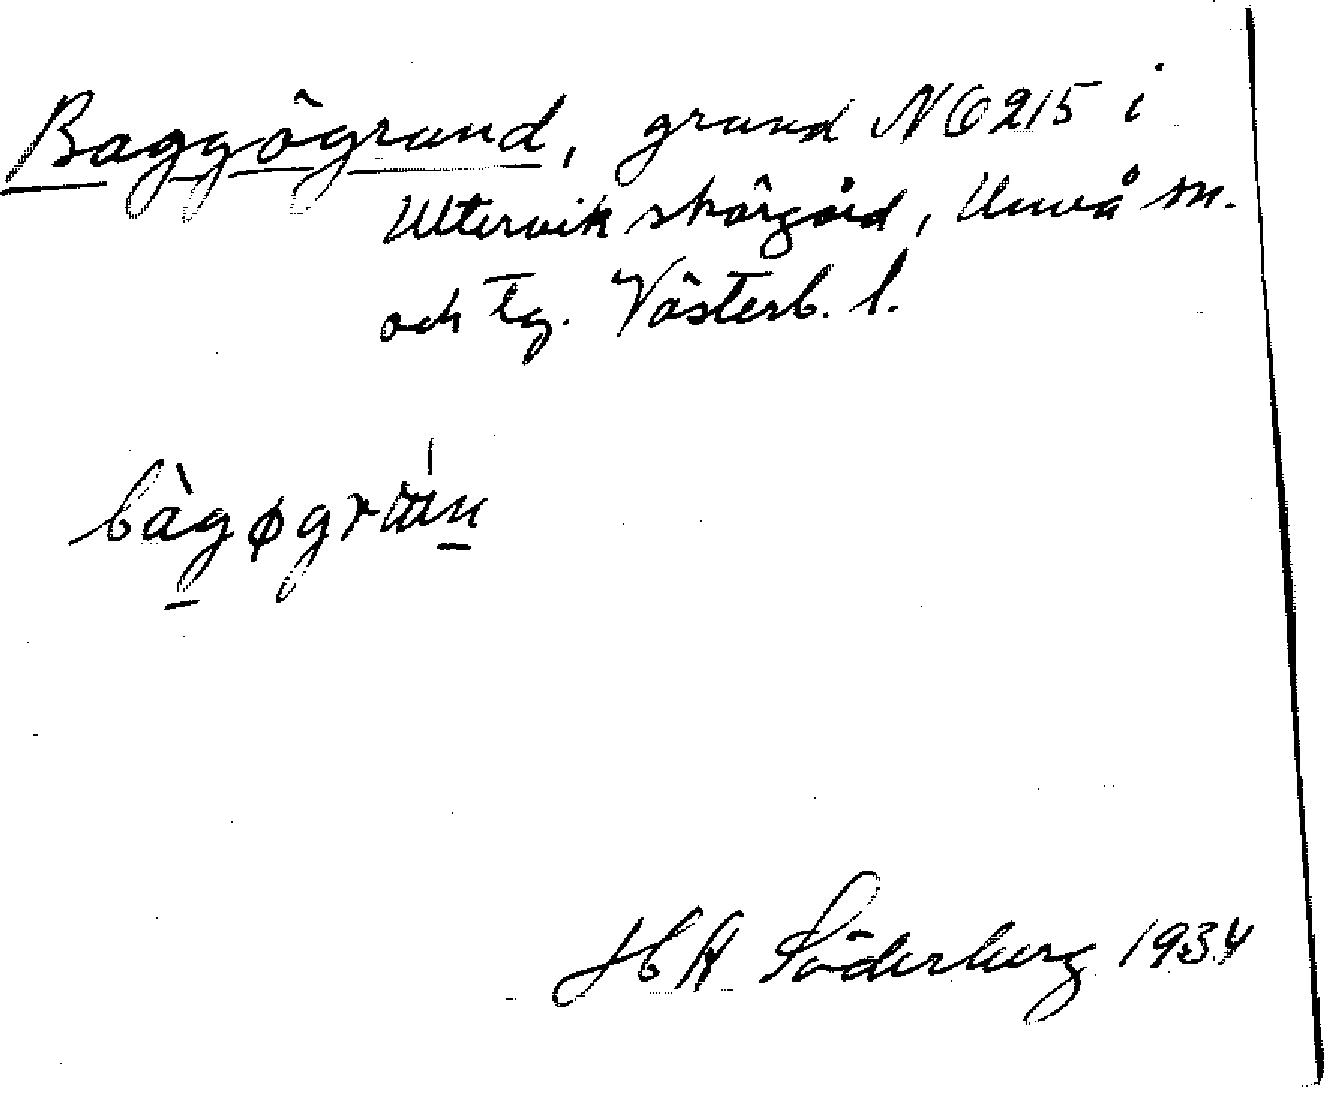 Baggögrund, grund N 6215 i
Ultervik skärgård, Umeå sn.
och tg. Västerb. l.
bàgøgrɯn
H A Söderberg 1934